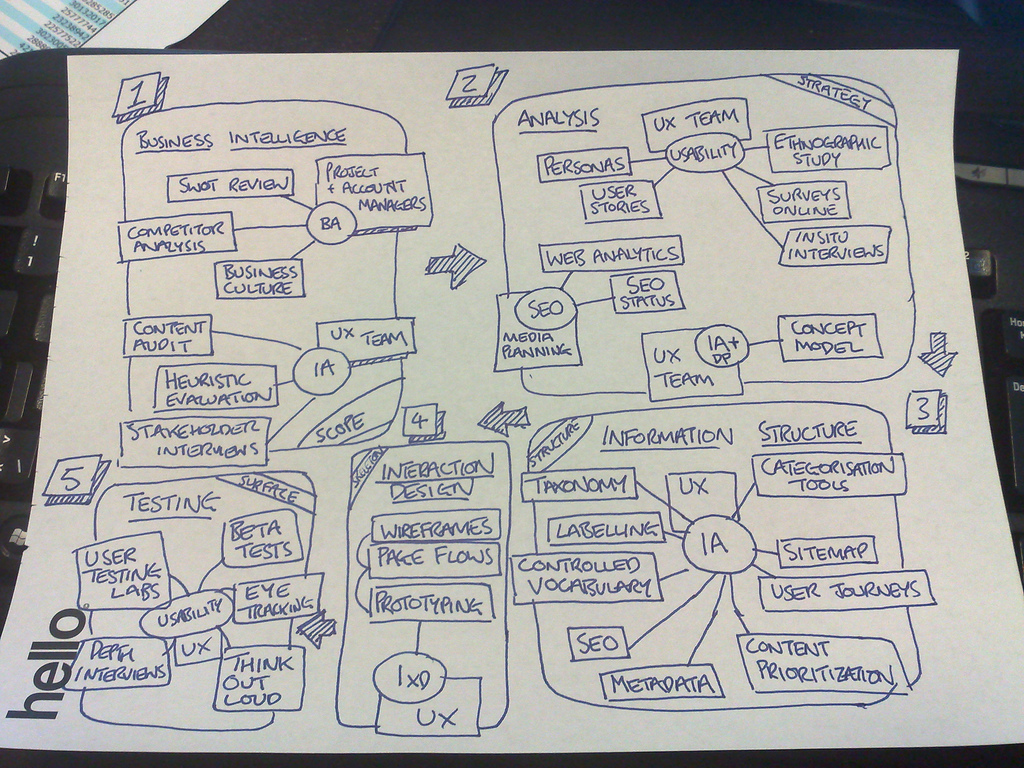 1
BUSINESS INTELLIGENCE
SWOT REVIEW
PROJECT
+ ACCOUNT
MANAGERS
BA
COMPETITOR
ANALYSIS
BUSINESS
CULTURE
CONTENT
AUDIT
UX TEAM
IA
HEURISTIC
EVALUATION
STAKEHOLDER
INTERVIEWS
SCOPE
2
STRATEGY
ANALYSIS
UX TEAM
USABILITY
ETHNOGRAPHIC
STUDY
PERSONAS
USER
STORIES
SURVEYS
ONLINE
INSITU
INTERVIEWS
WEB ANALYTICS
SEO
SEO
STATUS
MEDIA
PLANNING
UX
TEAM
IA+
DP
CONCEPT
MODEL
3
STRUCTURE
INFORMATION STRUCTURE
TAXONOMY
UX
CATEGORISATION
TOOLS
LABELLING
IA
SITEMAP
CONTROLLED
VOCABULARY
USER JOURNEYS
SEO
METADATA
CONTENT
PRIORITIZATION
4
INTERACTION
DESIGN
WIREFRAMES
PAGE FLOWS
PROTOTYPING
IXD
UX
5
SURFACE
TESTING
BETA
TESTS
USER
TESTING
LABS
EYE
TRACKING
USABILITY
UX
DEPTH
INTERVIEWS
THINK
OUT
LOUD
hello
F1